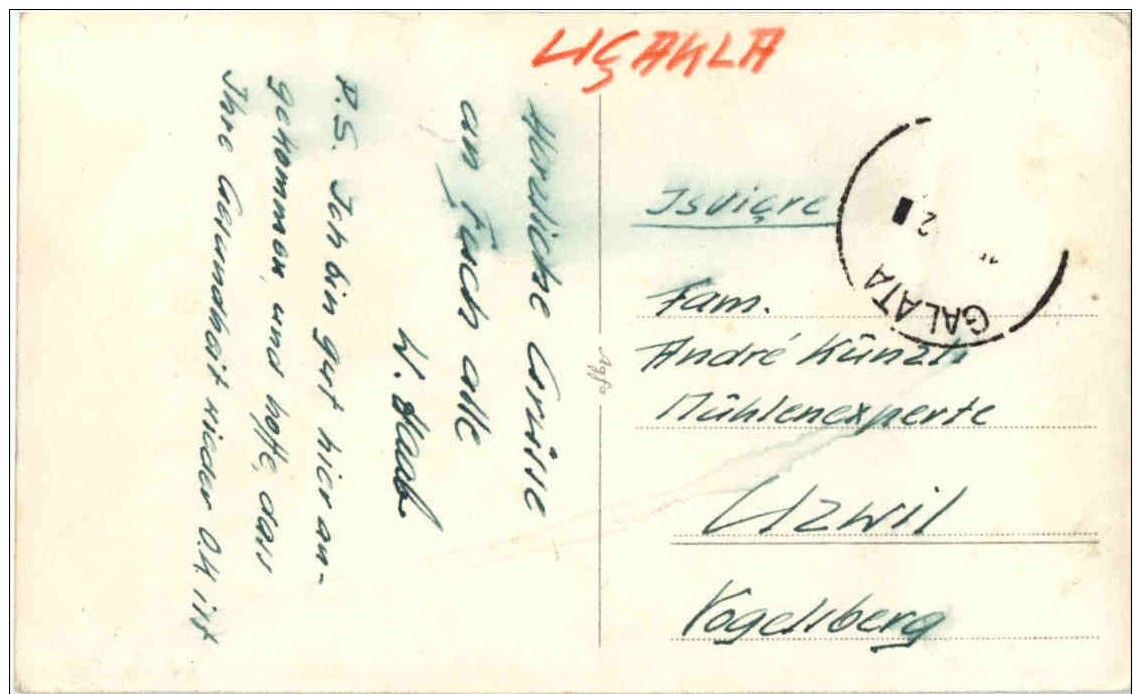 UÇAKLA
Herzliche Grüsse
an Euch alle
W. Staub
P.S. Ich bin gut hier an-
gekommen, und hoffe, dass
Ihre Gesundheit wieder O.K. ist
Isviçre
Fam.
André Künzli
Mühlenexperte
Uzwil
Vogelsberg
GALATA
2
Agfa